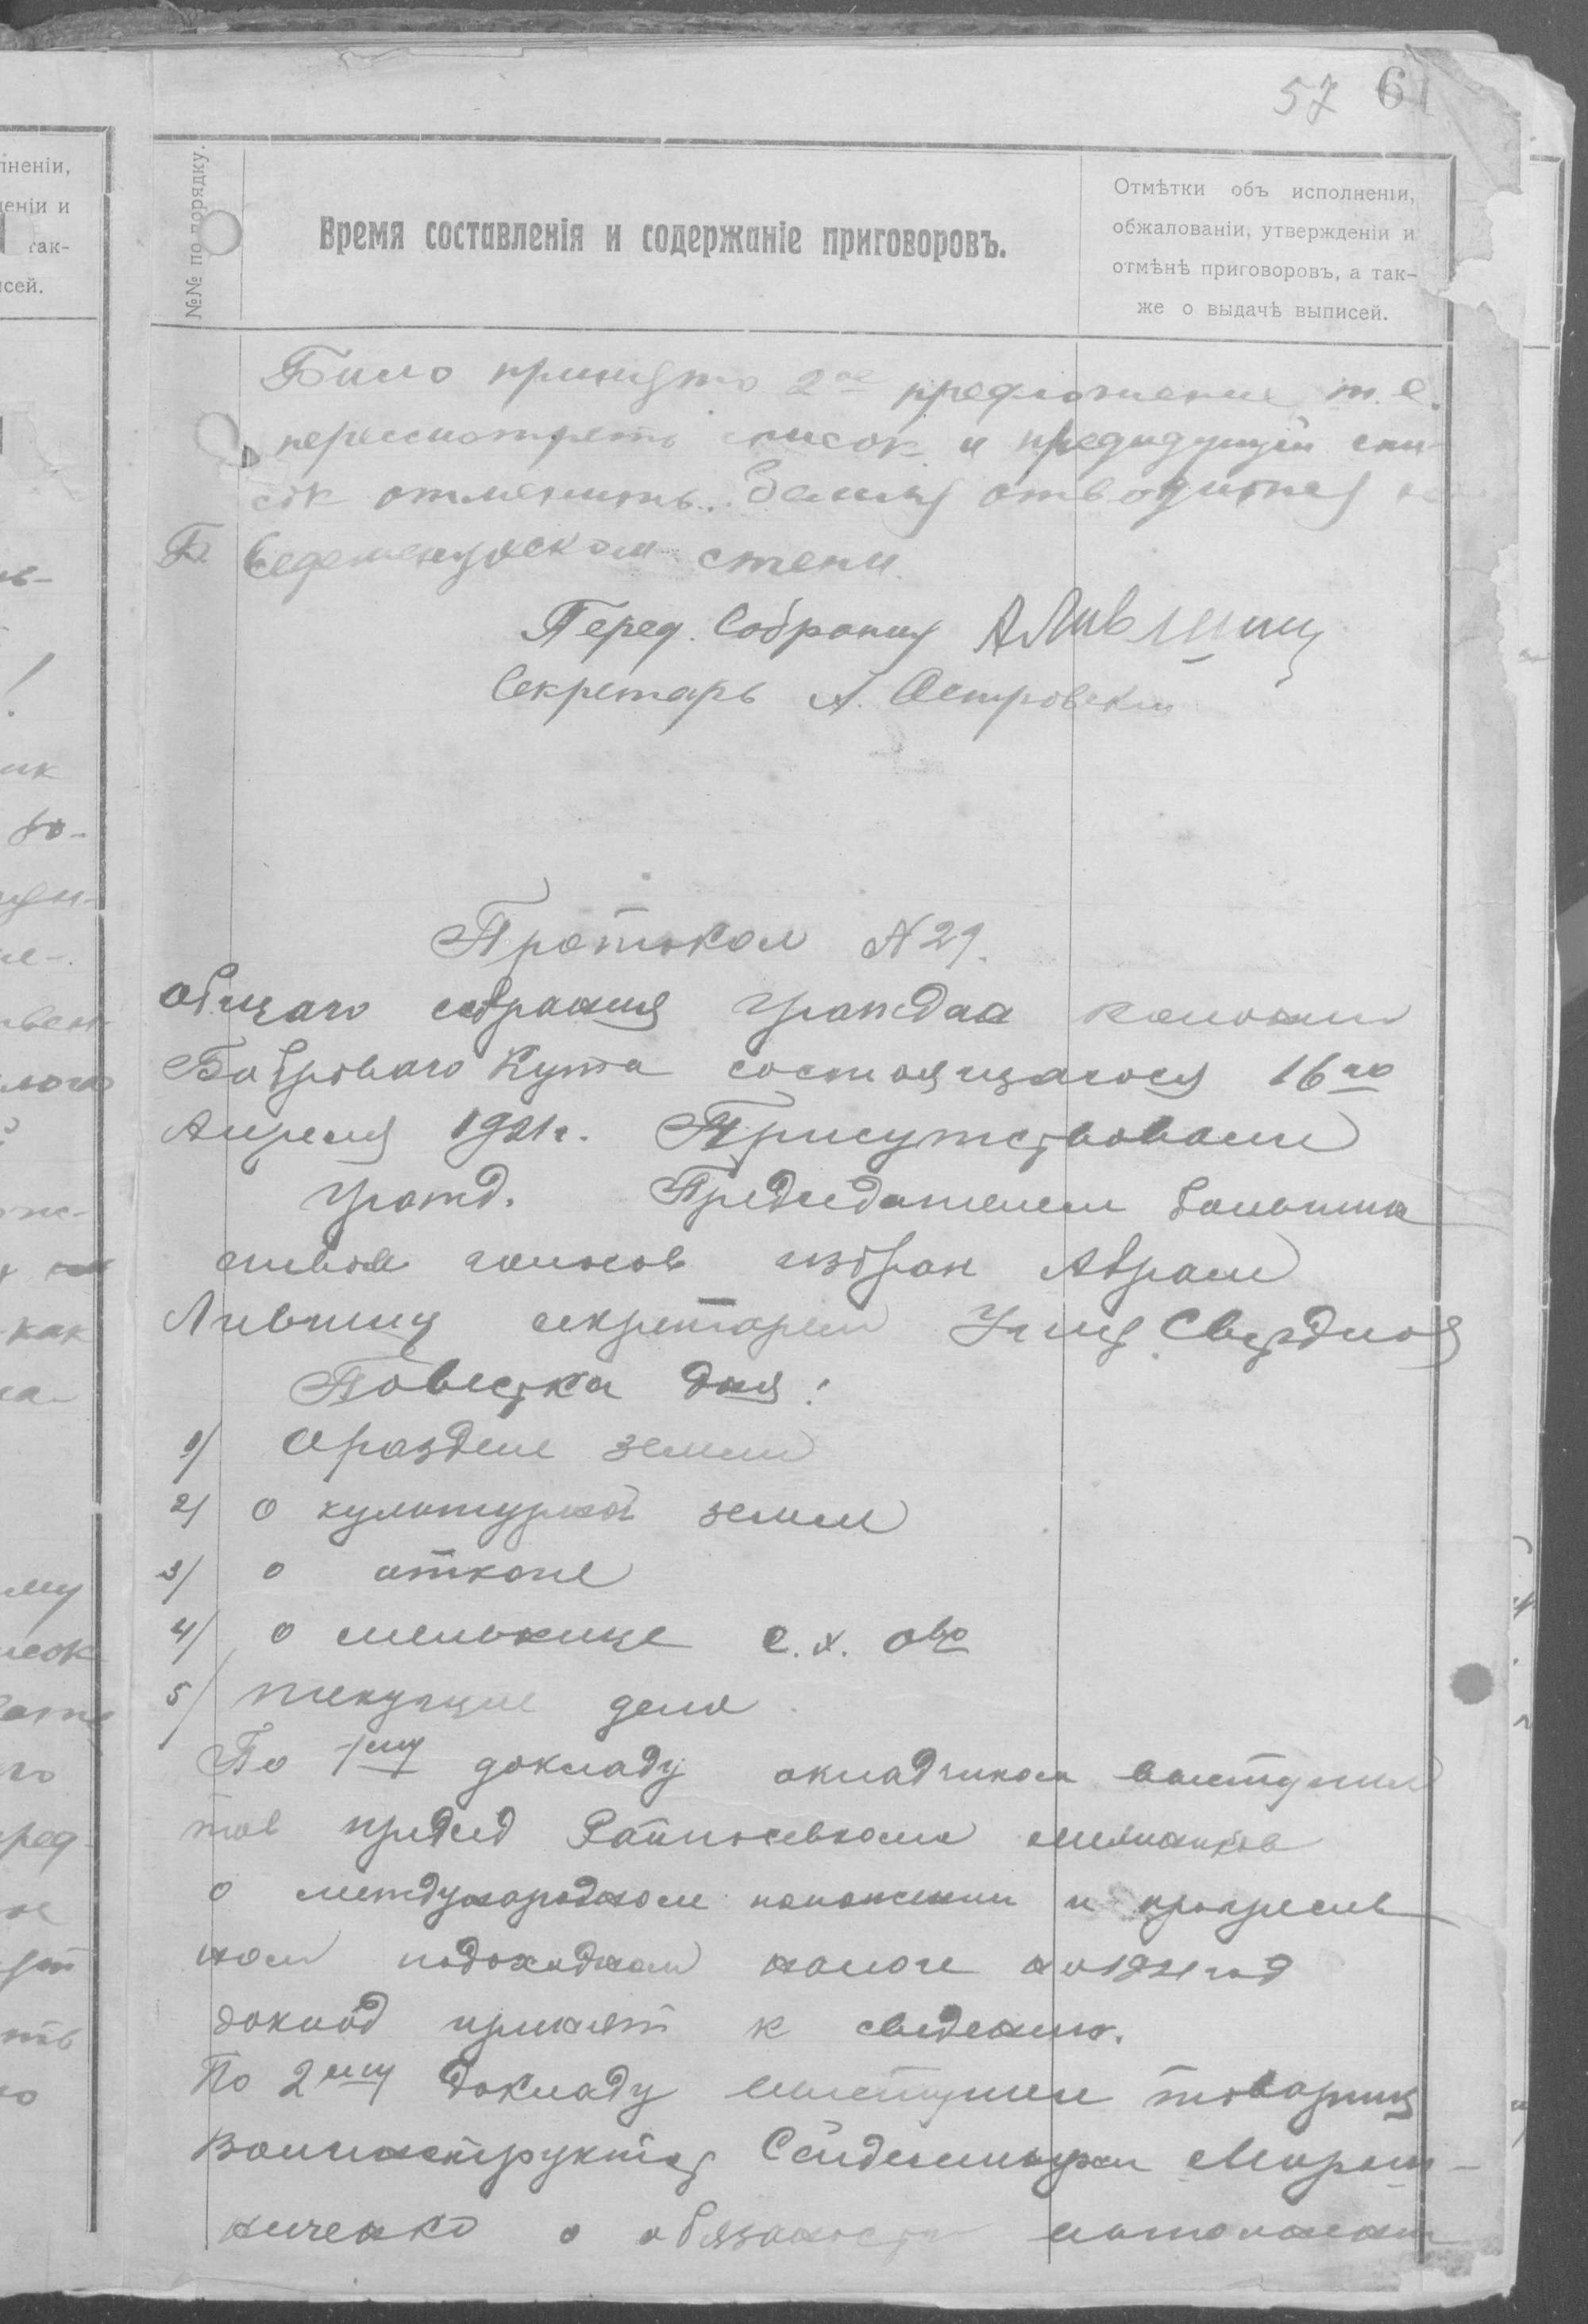 57 6
№№ по порядку.
Время составленія и содержаніе приговоровъ.
Отмѣтки объ исполненіи,
обжалованіи, утвержденіи и
отмѣнѣ приговоровъ, а так-
же о выдачѣ выписей.
Било принято 2ое предложение т.е.
пересмотреть список и предидущий спи-
сок отменить. Земля отводится
степи.
Перед. Собрания А Лившиц
Секретарь А. Островский
Протокол N 29.
общаго собрания граждан колонии
Боброваго Кута состоящагося 16го
Апреля 1921 г. Присутствовали
гражд. Председателем большин
ством голосов избран Абрам
Лившиц секретарем Свердлов
Повестка дня:
1) О разделе земли
2) о культурной земле
3) о
4) о мельнице с.х. ово
5) текущие дела
По 1му докладу выступил
тов председ
о международном положении и прогресив
ном подоходном налоге на 1921 год
доклад принят к сведению.
По 2му докладу выступил товарищ
Мирош-
ниченко о обязаности